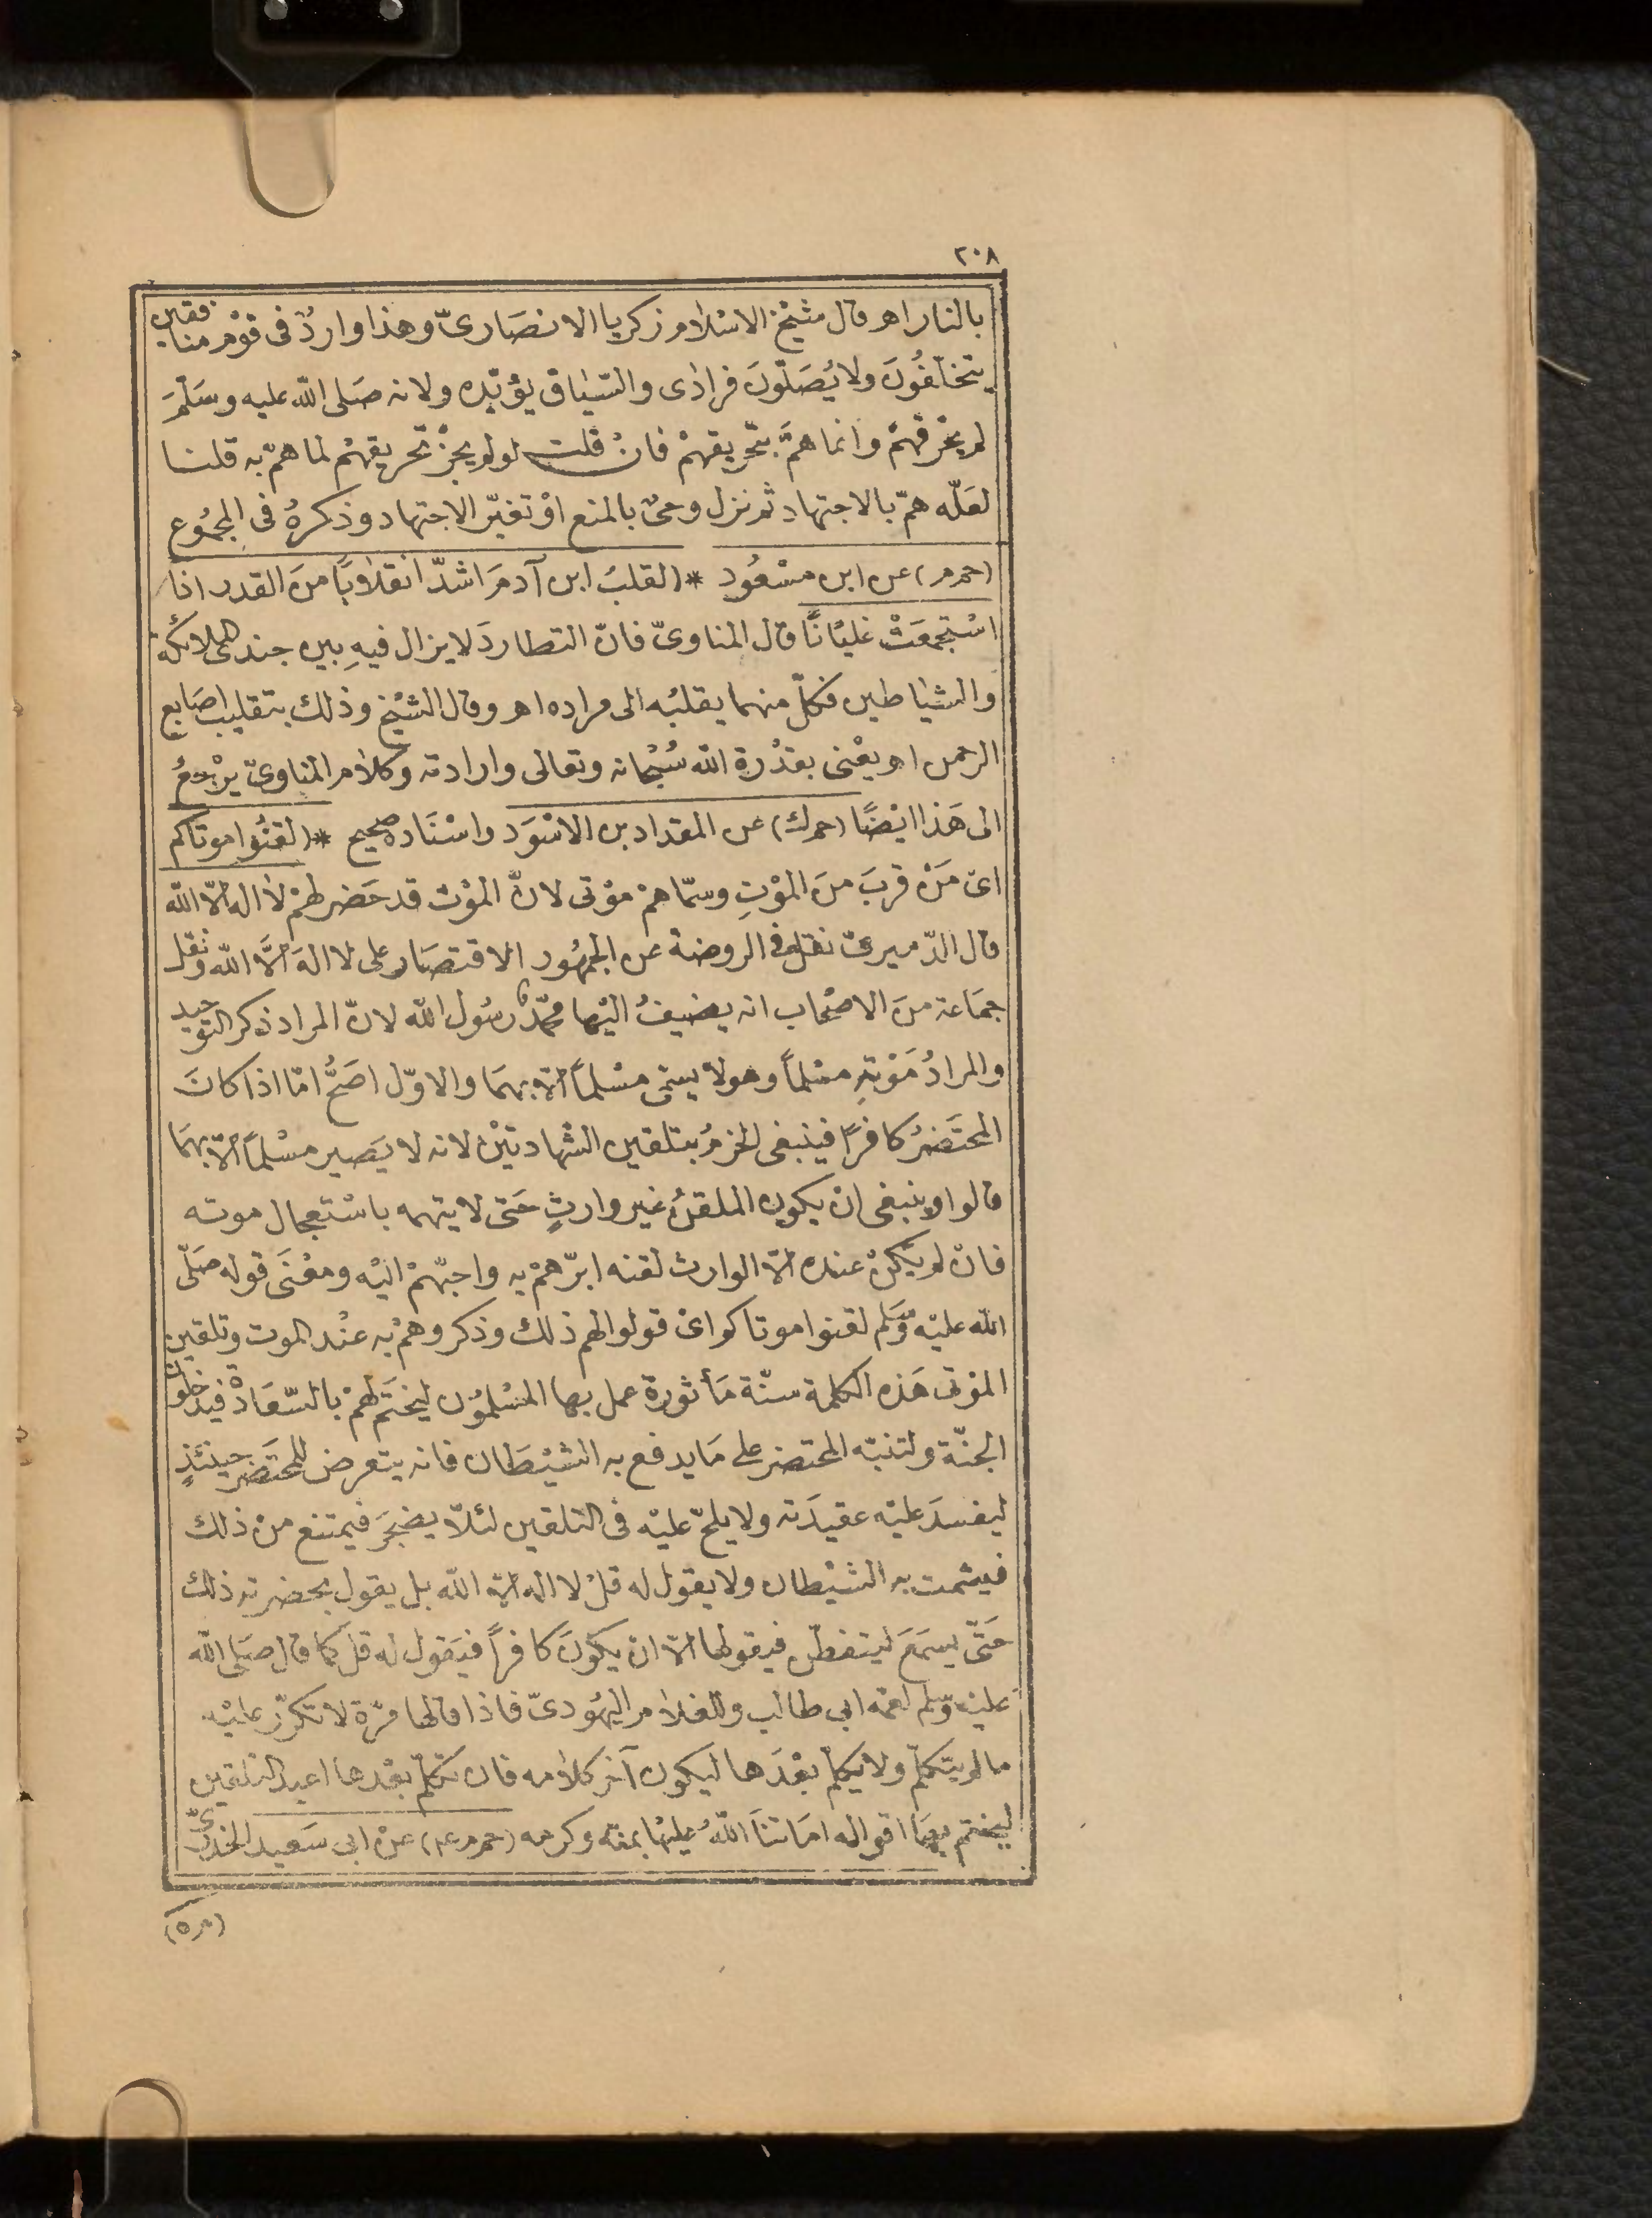 ٢٠٨
بالنار اهـ قال شيخ الاسْلام زكريا الانصَارىّ وهذا واردٌ فى قوْم منافقين
يتخلّفُونَ ولا يُصَلّونَ فرادى والسّياق يؤيّده ولانه صَلى اللّه عليه وسَلّمَ
لم يحْرقهمْ وانما همَّ بتحْريقهمْ فانْ قلت لو لم يجزْ تحْريقهُمْ لما همّ به قلنا
لعَلّه همّ بالاجتهاد ثم نزل وحىٌ بالمنع اوْ تغيّر الاجتهاد وذكرهُ فى المجمُوع
(حم م) عن ابن مسْعُود * (لقلبُ ابن آدمَ اشدّ انقلاباً منَ القدر اذا
اسْتجمعَتْ غليَاناً قال المناوىّ فانّ التطاردَ لا يزال فيهِ بين جند الملائكة
والشيَاطين فكلّ منهما يقلبُه الى مراده اهـ وقال الشيْخ وذلك بتقليب اصَابع
الرحمن اهـ يعْنى بقدْرة اللّه سُبْحانه وتعالى وارادته وكلام المناوىّ يرْجعُ
الى هَذا ايْضًا (حم ك) عن المقداد بن الاسْوَد واسْنَاده صحيح * (لقنُوا موتاكم
اىْ مَنْ قربَ منَ الموْتِ وسمّاهمْ موْتى لانّ الموْت قد حَضرهمْ لا اله الاّ اللّه
قال الدّميرىّ نقل فى الروضة عن الجمهُور الاقتصَار على لا الهَ الاَّ اللّه ونقل
جمَاعة منَ الاصْحاب انه يضيفُ اليْها محمّدٌ رسُول اللّه لانّ المراد ذكر التوحيد
والمرادُ مَوْتهِ مسْلماً وهو لا يسمّى مسْلماً الاّ بهمَا والاوّل اصَحُّ امّا اذا كانَ
المحتَضرُ كافراً فينبغى الجزمُ بتلقين الشهادتيْن لانه لا يَصير مسْلماً الاّ بهمَا
قالوا وينبغى انْ يكون الملقنُ غير وارثٍ حَتى لا يتهمه باسْتعجال موته
فانْ لم يَكنْ عنده الاّ الوارث لقنه ابرّهمْ به واحبّهمْ اليْه ومعْنَى قوله صَلّى
اللّه عليْه وسَلم لقنوا موتاكم اىْ قولوا لهم ذلك وذكروهمْ به عنْد الموت وتلقين
الموْتى هَذه الكلمة سنّة مَأثورة عمل بها المسْلموُن ليختَم لهمْ بالسّعَادة فيدخلون
الجنّة ولتنبّه المحتضر على مَا يدفع به الشيْطَان فانه يتعرض للمحتَضر حينئذٍ
ليفسدَ عليْه عقيدَته ولا يلحّ عليْه فى التلقين لئلاّ يضجَرَ فيمتنع منْ ذلك
فيشمت به الشيْطان ولا يقول له قلْ لا اله الاّ اللّه بل يقول بحضرته ذلك
حَتّى يسمَعَ ليتفطّن فيقولها الاّ انْ يكونَ كافراً فيَقول له قلْ كما قال صَلى اللّه
عليْه وسّلم لعمّه ابى طالب وللغلام اليهُودىّ فاذا قالها مرّة لا تكرّر عليْه
ما لم يتكلّم ولا يكلّم بعْدَها ليكون آخر كلامه فان تكلّم بعْدها اعيد التلقين
ليختم بهَا اقواله امَاتنَا اللّهُ عليْها بمنّه وكرمه (حم م ع) عنْ ابى سَعيد الخدرىّ
(م ٥)